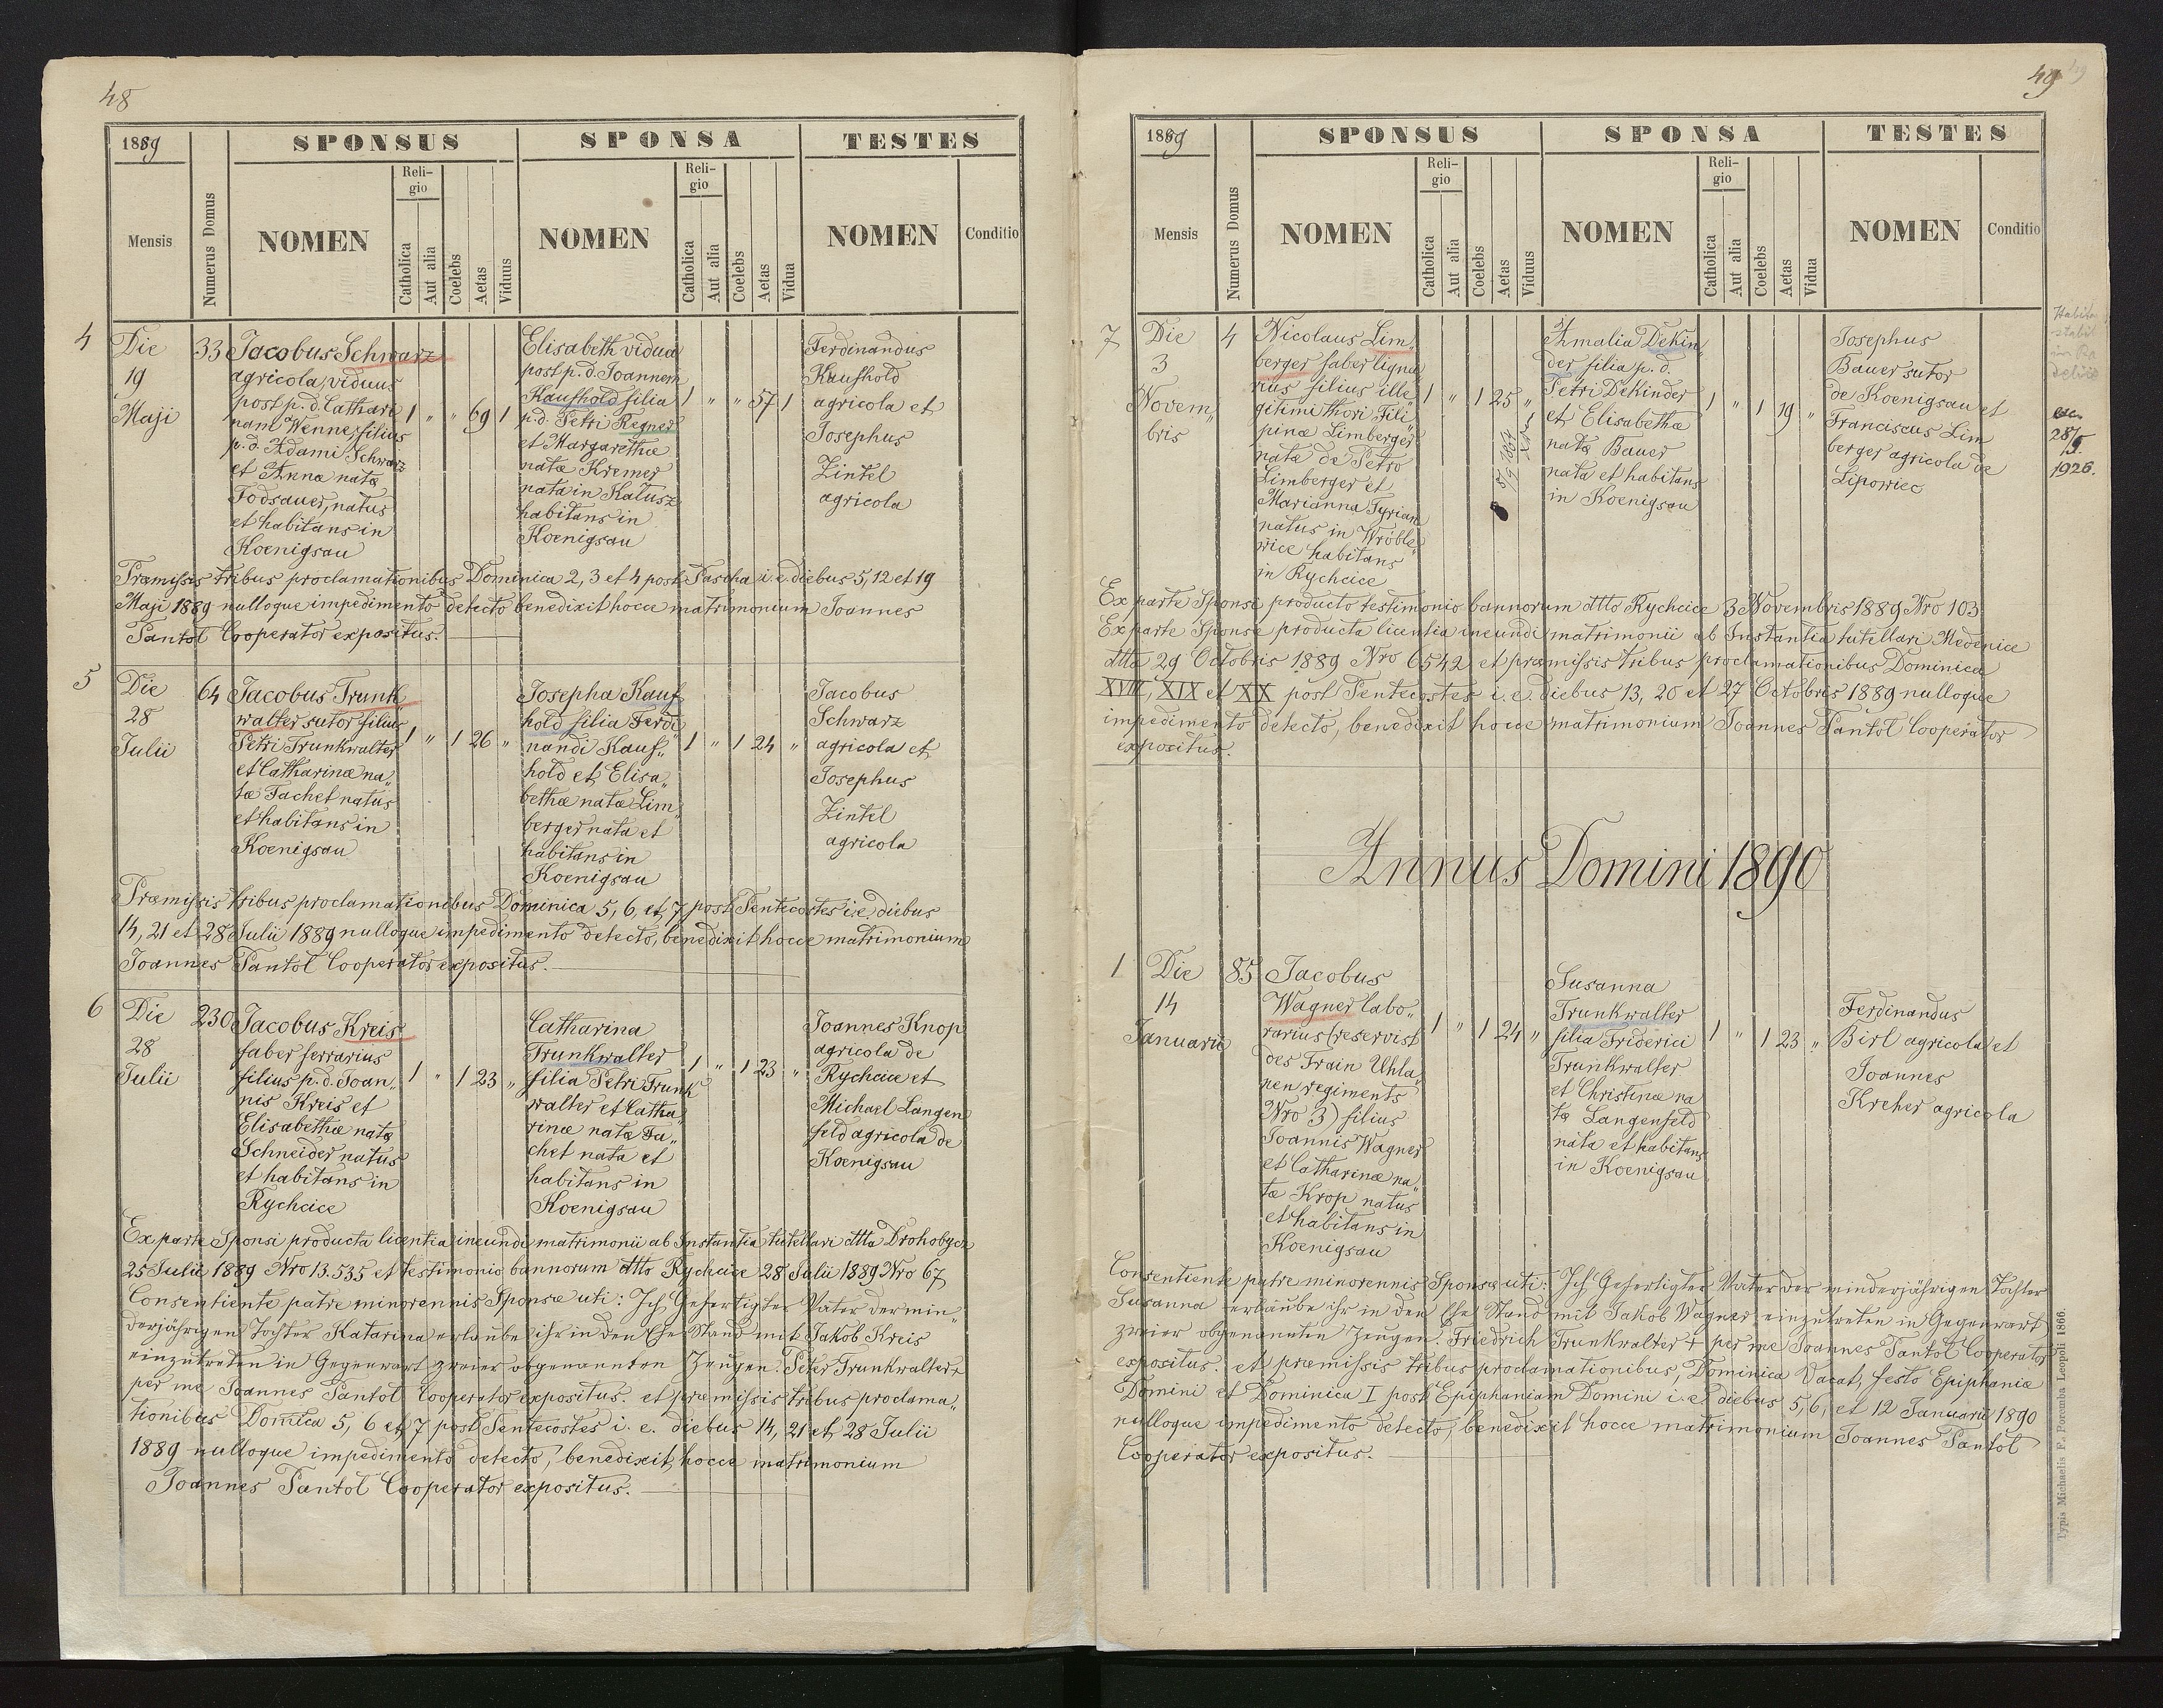 48
1889
SPONSUS
SPONSA
TESTES
Mensis
Numerus Domus
NOMEN
Reli-
gio
Catholica
Aut alia
Coelebs
Aetas
Viduus
NOMEN
Reli-
gio
Catholica
Aut alia
Coelebs
Aetas
Vidua
NOMEN
Conditio
4
Die
19
Maji
33
Jacobus Schwarz
agricola, viduus
post p. d. Cathari
nam Wenner, filius
p. d. Adami Schwarz
et Annæ natæ
Fodsauer, natus
et habitans in
Koenigsau
1 " " 69 1
Elisabeth vidua
post p. d. Joannem
Kaufhold filia
p. d. Petri Regner
et Margarethæ
natæ Kremer
nata in Katusz
habitans in
Koenigsau
1 " " 57 1
Ferdinandus
Kaufhold
agricola et
Josephus
Zintel
agricola
Præmissis tribus proclamationibus Dominica 2, 3 et 4 post Pascha i. e. diebus 5, 12 et 19
Maji 1889 nulloque impedimento detecto benedixit hocce matrimonium Joannes
Pantoł Cooperator expositus.
5
Die
28
Julii
64
Jacobus Trunk
walter sutor filius
Petri Trunkwalter
et Catharinæ na„
tæ Fachet natus
et habitans in
Koenigsau
1 " 1 26 "
Josepha Kauf
hold filia Ferdi
nandi Kauf„
hold et Elisa„
bethæ natæ Lim„
berger nata et
habitans in
Koenigsau
1 " 1 24 "
Jacobus
Schwarz
agricola et
Josephus
Zintel
agricola
Præmissis tribus proclamationibus Dominica 5, 6, et 7 post Pentecostes i. e. diebus
14, 21 et 28 Julii 1889 nulloque impedimento detecto, benedixit hocce matrimonium
Joannes Pantoł Cooperator expositus.
6
Die
28
Julii
230
Jacobus Kreis
faber ferrarius
filius p. d. Joan„
nis Kreis et
Elisabethæ natæ
Schneider natus
et habitans in
Rychcice
1 " 1 23 "
Catharina
Trunkwalter
filia Petri Trunk
walter et Catha„
rinæ natæ Fa„
chet nata et
habitans in
Koenigsau
1 " 1 23 "
Joannes Knop
agricola de
Rychcice et
Michael Langen
feld agricola de
Koenigsau
Ex parte Sponsi producta licentia ineundi matrimonii ab Instantia tutellari dtto Drohobycz
25 Julii 1889 Nro 13.535 et testimonio bannorum dtto Rychcice 28 Julii 1889 Nro 67
Consentiente patre minorennis Sponsæ uti: Ich Gefertigter Vater der min„
derjährigen Tochter Katarina erlaube ihr in den Ehe Stand mit Jakob Kreis
einzutreten in Gegenwart zweier obgenannten Zeugen. Peter Trunkwalter +
per me Joannes Pantoł Cooperator expositus. et præmissis tribus proclama„
tionibus Domica 5, 6 et 7 post Pentecostes i. e. diebus 14, 21 et 28 Julii
1889 nulloque impedimento detecto, benedixit hocce matrimonium
Joannes Pantoł Cooperator expositus.
49
1889
SPONSUS
SPONSA
TESTES
Mensis
Numerus Domus
NOMEN
Reli-
gio
Catholica
Aut alia
Coelebs
Aetas
Viduus
NOMEN
Reli-
gio
Catholica
Aut alia
Coelebs
Aetas
Vidua
NOMEN
Conditio
7
Die
3
Novem„
bris
4
Nicolaus Lim„
berger faber ligna
rius filius ille„
gitimi thori Fili„
pinæ Limberger
nata de Petro
Limberger et
Marianna Tyrian
natus in Wróble„
wice habitans
in Rychcice
1 " 1 25 "
Amalia Dekin„
der filia p. d.
Petri Dekinder
et Elisabethæ
natæ Bauer
nata et habitans
in Koenigsau
1 " 1 19 "
Josephus
Bauer sutor
de Koenigsau et
Franciscus Lim
berger agricola de
Lipowiec
exc.
28/5.
1926.
Ex parte Sponsi producto testimonio bannorum dtto Rychcice 3 Novembris 1889 Nro 103
Ex parte Sponsæ producta licentia ineundi matrimonii ab Instantia tutellari Medenice
dtto 29 Octobris 1889 Nro 6542 et præmissis tribus proclamationibus Dominica
XVIII, XIX et XX post Pentecostes i. e. diebus 13, 20 et 27 Octobris 1889 nulloque
impedimento detecto, benedixit hocce matrimonium Joannes Pantoł Cooperator
expositus.
Annus Domini 1890
1
Die
14
Januarii
85
Jacobus
Wagner labo„
rarius (reservist
des Train Uhla„
nen regiments
Nro 3) filius
Joannis Wagner
et Catharinæ na„
tæ Krop natus
et habitans in
Koenigsau
1 " 1 24 "
Susanna
Trunkwalter
filia Friderici
Trunkwalter
et Christinæ na
tæ Langenfeld
nata et habitans
in Koenigsau
1 " 1 23 "
Ferdinandus
Birl agricola et
Joannes
Kreher agricola
Consentiente patre minorennis Sponsæ uti: Ich Gefertigter Vater der minderjährigen Tochter
Susanna erlaube ihr in den Ehe Stand mit Jakob Wagner einzutreten in Gegenwart
zweier obgenannten Zeugen. Friedrich Trunkwalter + per me Joannes Pantoł Cooperator
expositus. et præmissis tribus proclamationibus, Dominica Vacat, festo Epiphaniæ
Domini et Dominica I post Epiphaniam Domini i. e. diebus 5, 6, et 12 Januarii 1890
nulloque impedimento detecto, benedixit hocce matrimonium Joannes Pantoł
Cooperator expositus.
Typis Michaelis F. Poremba Leopoli 1866.